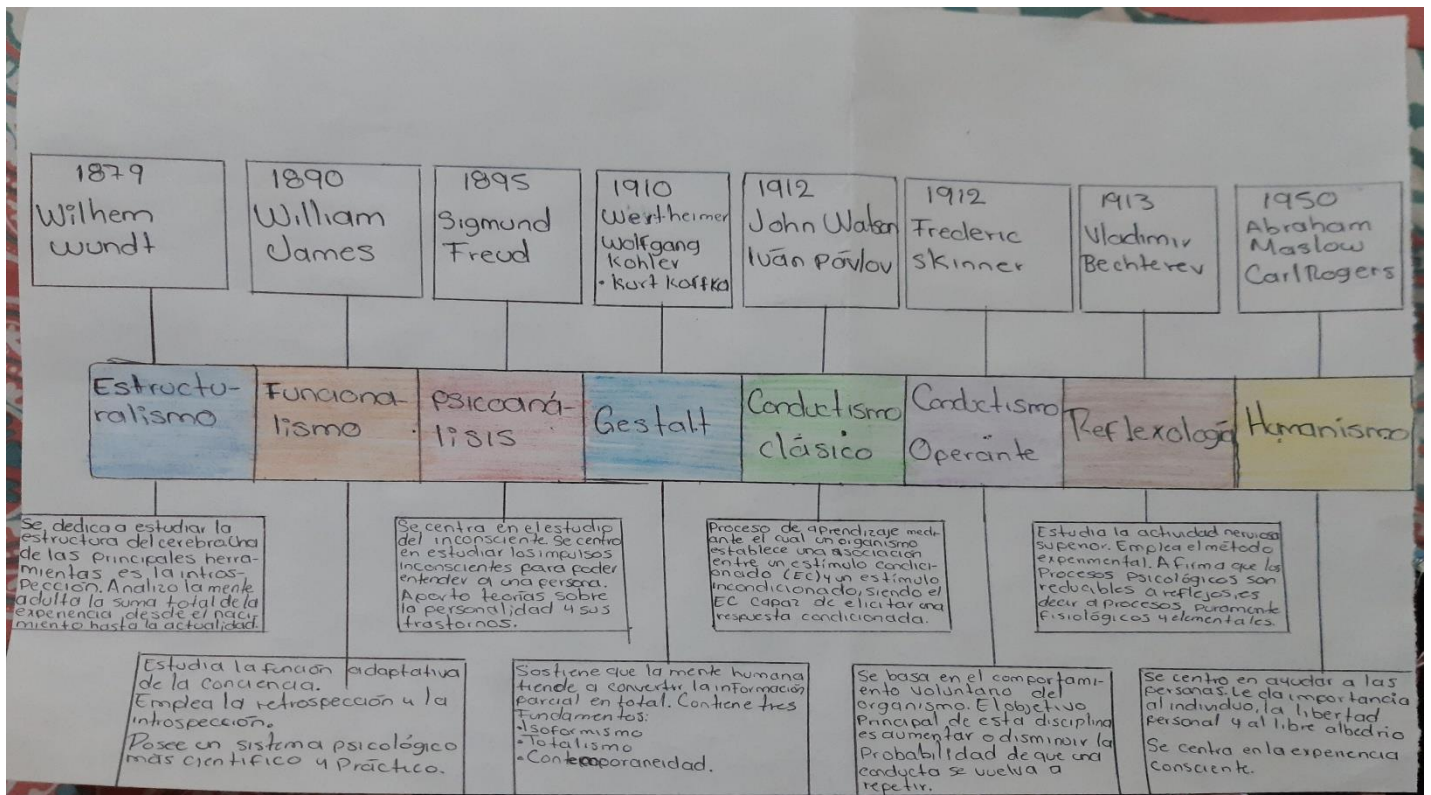 1879
Wilhem
wundt
1890
William
James
1895
Sigmund
Freud
1910
Wertheimer
Wolfgang
Kohler
• Kurt Koffka
1912
John Watson
Iván Póvlov
1912
Frederic
Skinner
1913
Vladimir
Bechterev
1950
Abraham
Maslow
Carl Rogers
Estructu-
ralismo
Funciona-
lismo
Psicoaná-
lisis
Gestalt
Conductismo
clásico
Conductismo
Operante
Reflexología
Humanismo
Se dedica a estudiar la
estructura del cerebro. Una
de las principales herra-
mientas es la intros-
pección. Analizo la mente
adulta la suma total de la
experiencia desde el naci-
miento hasta la actualidad.
Estudia la función adaptativa
de la conciencia.
Emplea la retrospección y la
introspección.
Posee un sistema psicológico
más científico y práctico.
Se centra en el estudio
del inconsciente. Se centro
en estudiar los impulsos
inconscientes para poder
entender a una persona.
Aporto teorías sobre
la personalidad y sus
trastornos.
Sostiene que la mente humana
tiende a convertir la información
parcial en total. Contiene tres
fundamentos:
• Isoformismo
• Totalismo
• Contemporaneidad.
Proceso de aprendizaje medi-
ante el cual un organismo
establece una asociación
entre un estímulo condici-
onado (EC) y un estímulo
incondicionado, siendo el
EC capaz de elicitar una
respuesta condicionada.
Se basa en el comportami-
ento voluntario del
organismo. El objetivo
principal de esta disciplina
es aumentar o disminuir la
probabilidad de que una
conducta se vuelva a
repetir.
Estudia la actividad nerviosa
superior. Emplea el método
experimental. Afirma que los
procesos psicológicos son
reducibles a reflejos, es
decir a procesos, puramente
fisiológicos y elementales.
Se centro en ayudar a las
personas. Le da importancia
al individuo, la libertad
personal y al libre albedrio
Se centra en la experiencia
consciente.